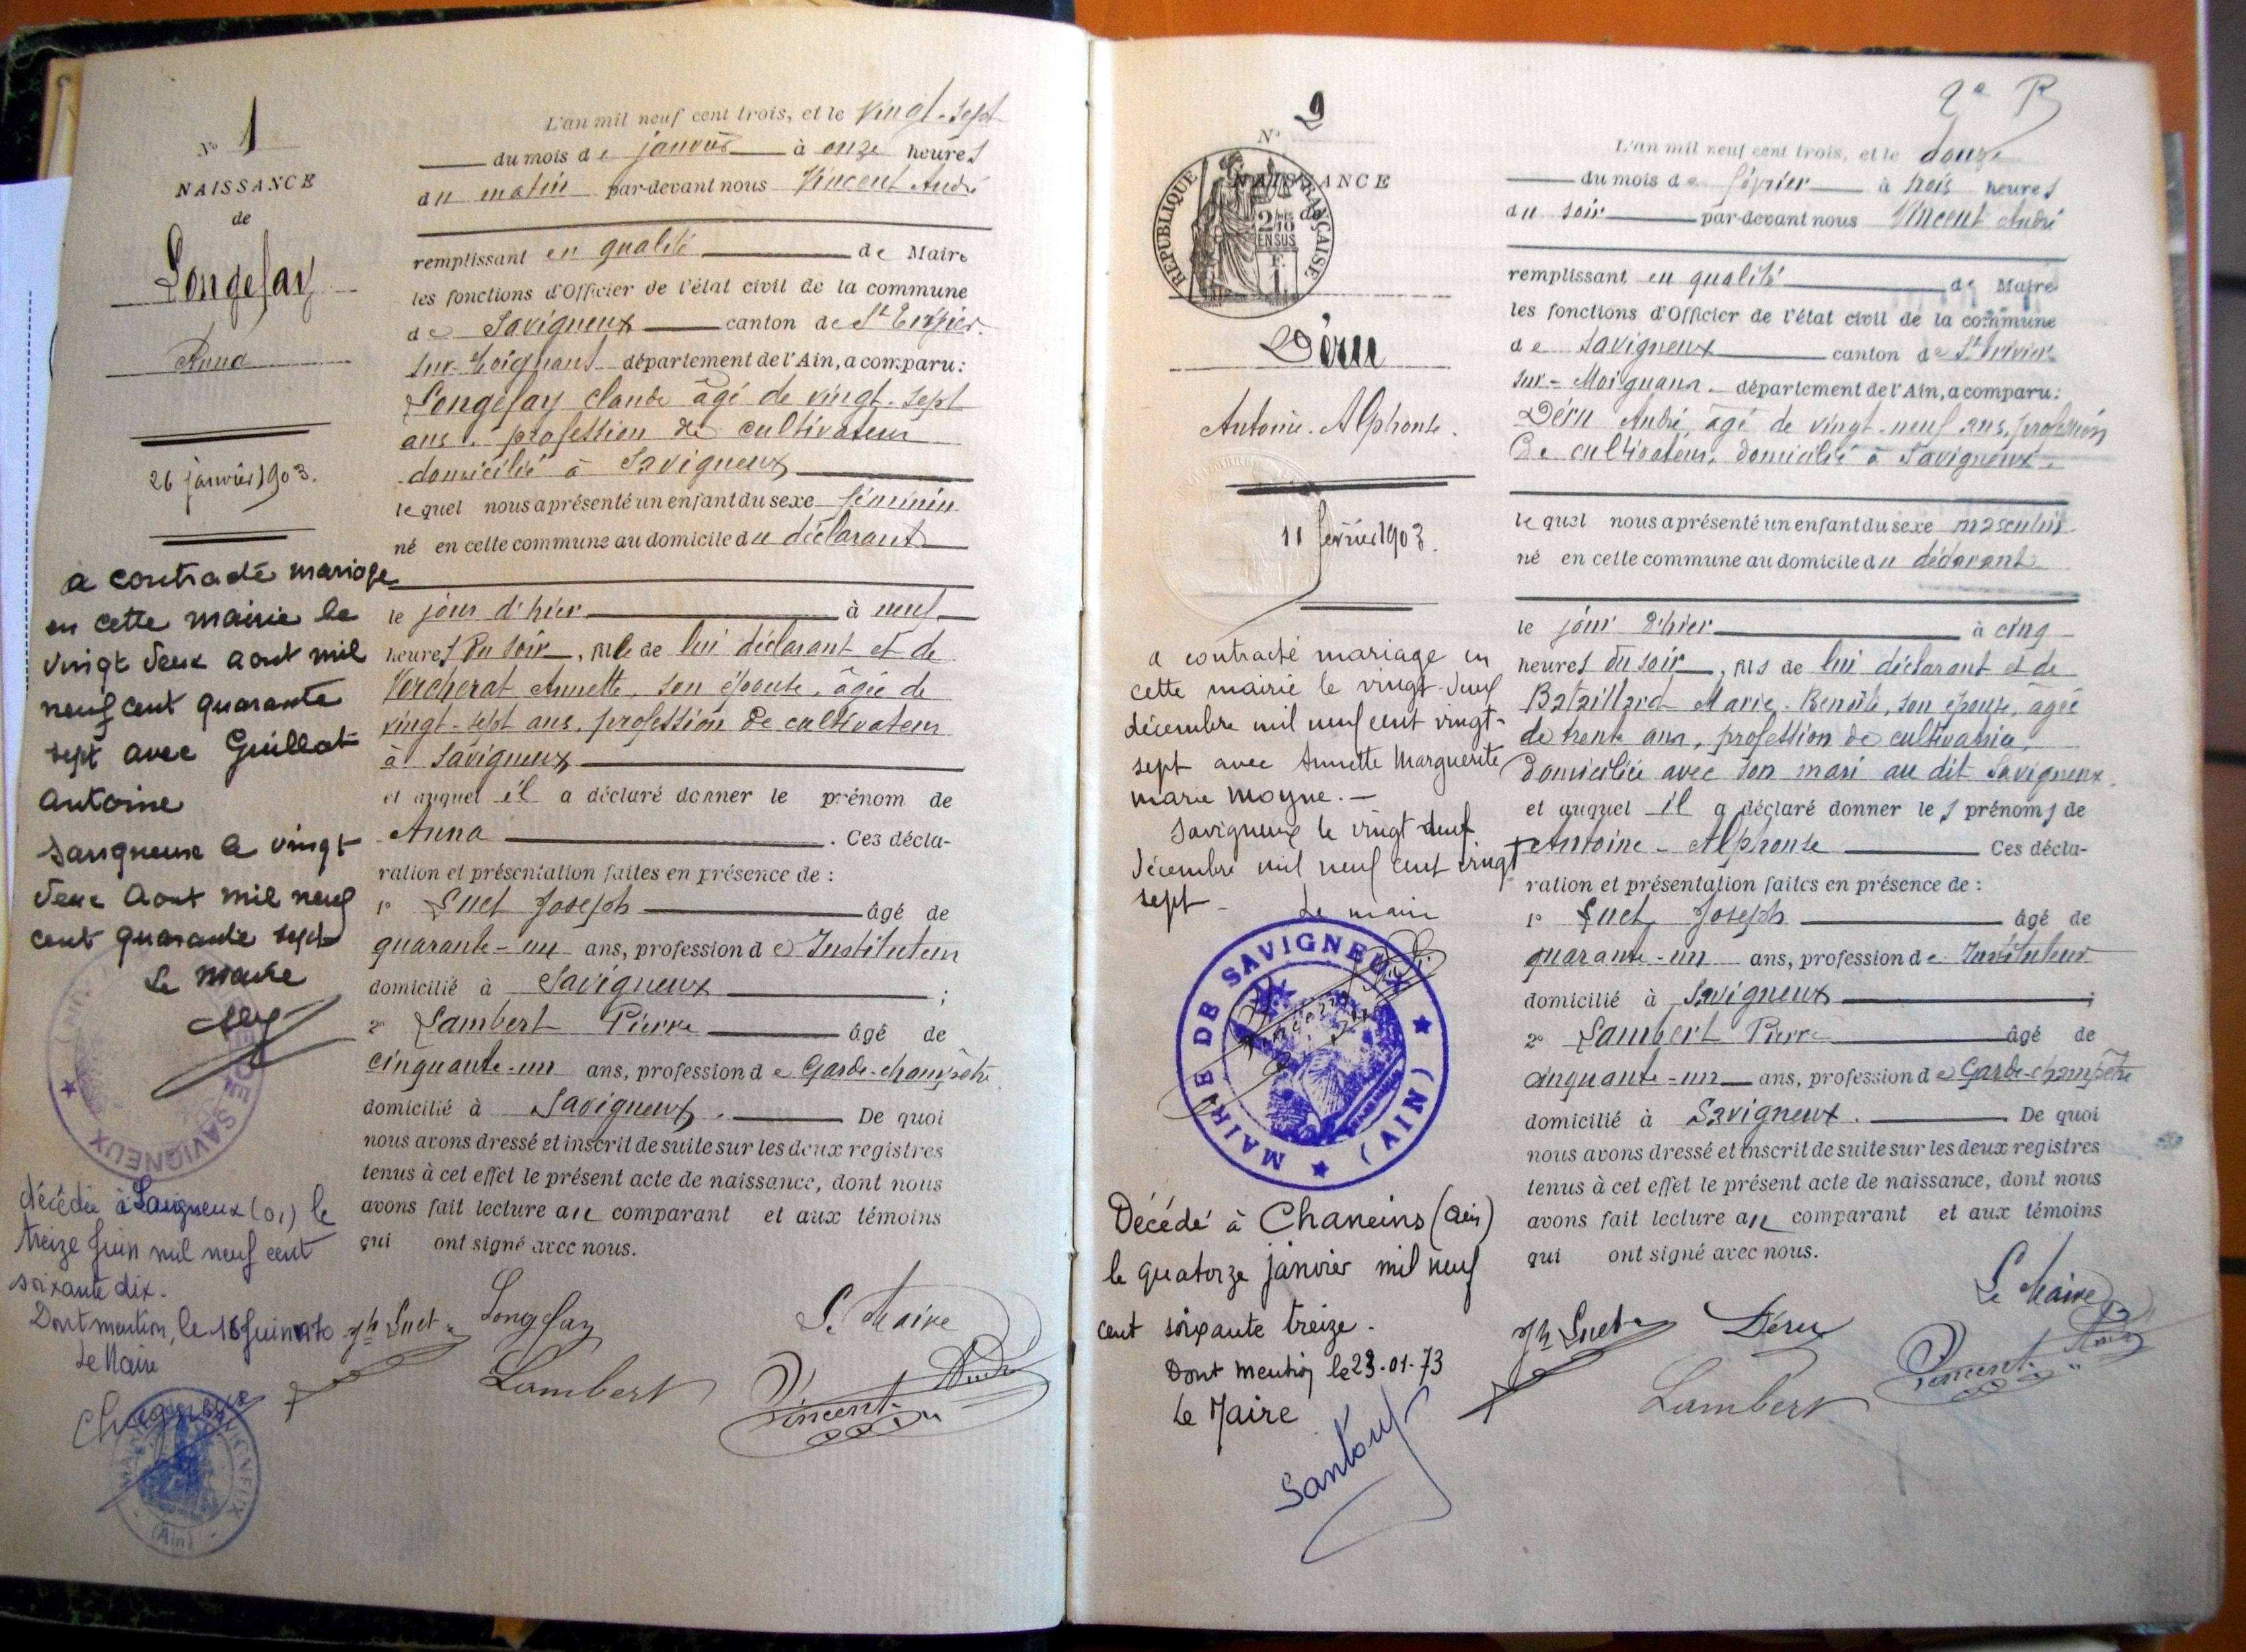 N° 1
NAISSANCE
de
Longefay
Anna
26 janvier 1903.
a contracté mariage
en cette mairie le
vingt deux aout mil
neuf cent quarante
sept avec Guillat
Antoine
Savigneux le vingt
deux Aout mil neuf
cent quarante sept
Le Maire
MAIRIE DE SAVIGNEUX (AIN)
décédée à Savigneux (01) le
treize juin mil neuf cent
soixante dix.
Dont mention, le 16 juin 1970
Le Maire
MAIRIE DE SAVIGNEUX
(Ain)
L'an mil neuf cent trois, et le vingt-sept
du mois de janvier à onze heures
du matin par-devant nous Vincent André
remplissant en qualité de Maire
les fonctions d'Officier de l'état civil de la commune
de Savigneux canton de St Trivier-
sur-Moignans département de l'Ain, a comparu:
Longefay Claude âgé de vingt-sept
ans, profession de cultivateur
domicilié à Savigneux
lequel nous a présenté un enfant du sexe féminin
né en cette commune au domicile du déclarant
le jour d'hier à neuf
heures du soir, fille de lui déclarant et de
Vercherat Annette, son épouse, âgée de
vingt-sept ans, profession de cultivateur
à Savigneux
et auquel il a déclaré donner le prénom de
Anna. Ces décla-
ration et présentation faites en présence de :
1° Suet Joseph âgé de
quarante-un ans, profession de Instituteur
domicilié à Savigneux ;
2° Lambert Pierre âgé de
cinquante-un ans, profession de Garde-champêtre
domicilié à Savigneux. De quoi
nous avons dressé et inscrit de suite sur les deux registres
tenus à cet effet le présent acte de naissance, dont nous
avons fait lecture au comparant et aux témoins
qui ont signé avec nous.
Jh Suet Longefay Le Maire
Lambert Vincent André
N° 2
NAISSANCE
de
RÉPUBLIQUE FRANÇAISE
2/10 EN SUS
F. 1
Déru
Antoine-Alphonse.
11 février 1903.
a contracté mariage en
cette mairie le vingt-deux
décembre mil neuf cent vingt-
sept avec Annette Marguerite
Marie Moyne.-
Savigneux le vingt deux
décembre mil neuf cent vingt
sept-
Le maire
MAIRIE DE SAVIGNEUX (AIN)
Décédé à Chaneins (Ain)
le quatorze janvier mil neuf
cent soixante treize.
Dont mention le 23-01-73
Le Maire
2e
L'an mil neuf cent trois, et le douze
du mois de février à trois heures
du soir par-devant nous Vincent André
remplissant en qualité de Maire
les fonctions d'Officier de l'état civil de la commune
de Savigneux canton de St Trivier
sur-Moignans. département de l'Ain, a comparu:
Déru André, âgé de vingt-neuf ans, profession
de cultivateur, domicilié à Savigneux.
lequel nous a présenté un enfant du sexe masculin
né en cette commune au domicile du déclarant
le jour d'hier à cinq
heures du soir, fils de lui déclarant et de
Bataillard Marie-Benoîte, son épouse, âgée
de trente ans, profession de cultivatrice,
domiciliée avec son mari au dit Savigneux.
et auquel il a déclaré donner les prénoms de
Antoine-Alphonse Ces décla-
ration et présentation faites en présence de :
1° Suet Joseph âgé de
quarante-un ans, profession de Instituteur
domicilié à Savigneux ;
2° Lambert Pierre âgé de
cinquante-un ans, profession de Garde-champêtre
domicilié à Savigneux. De quoi
nous avons dressé et inscrit de suite sur les deux registres
tenus à cet effet le présent acte de naissance, dont nous
avons fait lecture au comparant et aux témoins
qui ont signé avec nous.
Le Maire
Jh Suet Déru
Lambert Vincent André